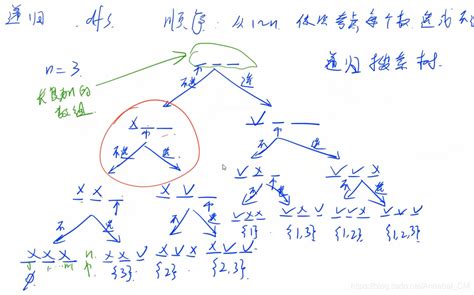 递归 dfs 顺序：从1~n 依次考虑每个数 选或不
递归搜索树.
n=3.
长度为n的
数组
不选 选
X
V
不选 选
不 选
X X
X V
V X
V V X
不 选
不 选
不 选
不 选
X X X
X X V
X V X
X V V
V X X
V X V
V V X
V V V
∅ {3} {2} {2,3} {1} {1,3} {1,2} {1,2,3}